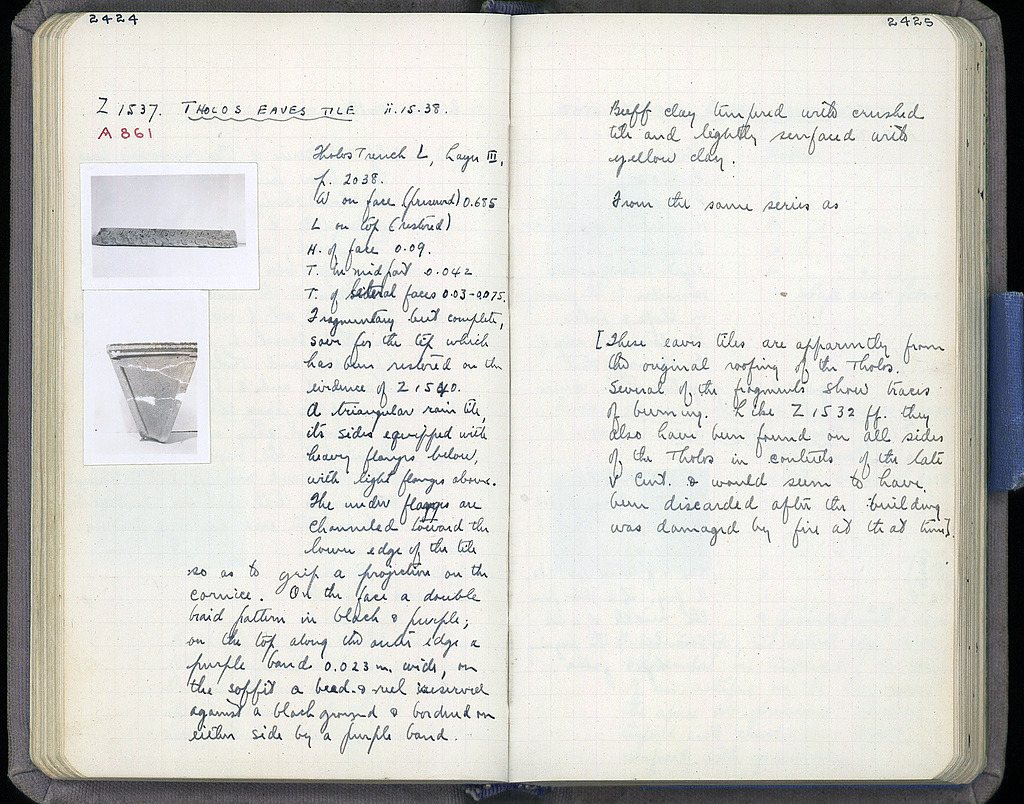 2424
Z 1537. THOLOS EAVES TILE ii.15.38.
A 861
Tholos Trench L, Layer III,
p. 2038.
W on face (preserved) 0.685
L on top (restored)
H. of face 0.09.
T. in mid part 0.042
T. of lateral faces 0.03-0.075.
Fragmentary but complete,
save for the tip which
has been restored on the
evidence of Z 1540.
A triangular rain tile,
its sides equipped with
heavy flanges below,
with light flanges above.
The under flanges are
channeled toward the
lower edge of the tile
so as to grip a projection on the
cornice. On the face a double
braid pattern in black & purple;
on the top along the outer edge a
purple band 0.023 m. wide, on
the soffit a bead & reel reserved
against a black ground & bordered on
either side by a purple band.
2425
Buff clay tempered with crushed
tile and lightly surfaced with
yellow clay.
From the same series as
[These eaves tiles are apparently from
the original roofing of the Tholos.
Several of the fragments show traces
of burning. Like Z 1532 ff. they
also have been found on all sides
of the Tholos in contexts of the late
V Cent. & would seem to have
been discarded after the building
was damaged by fire at that time].